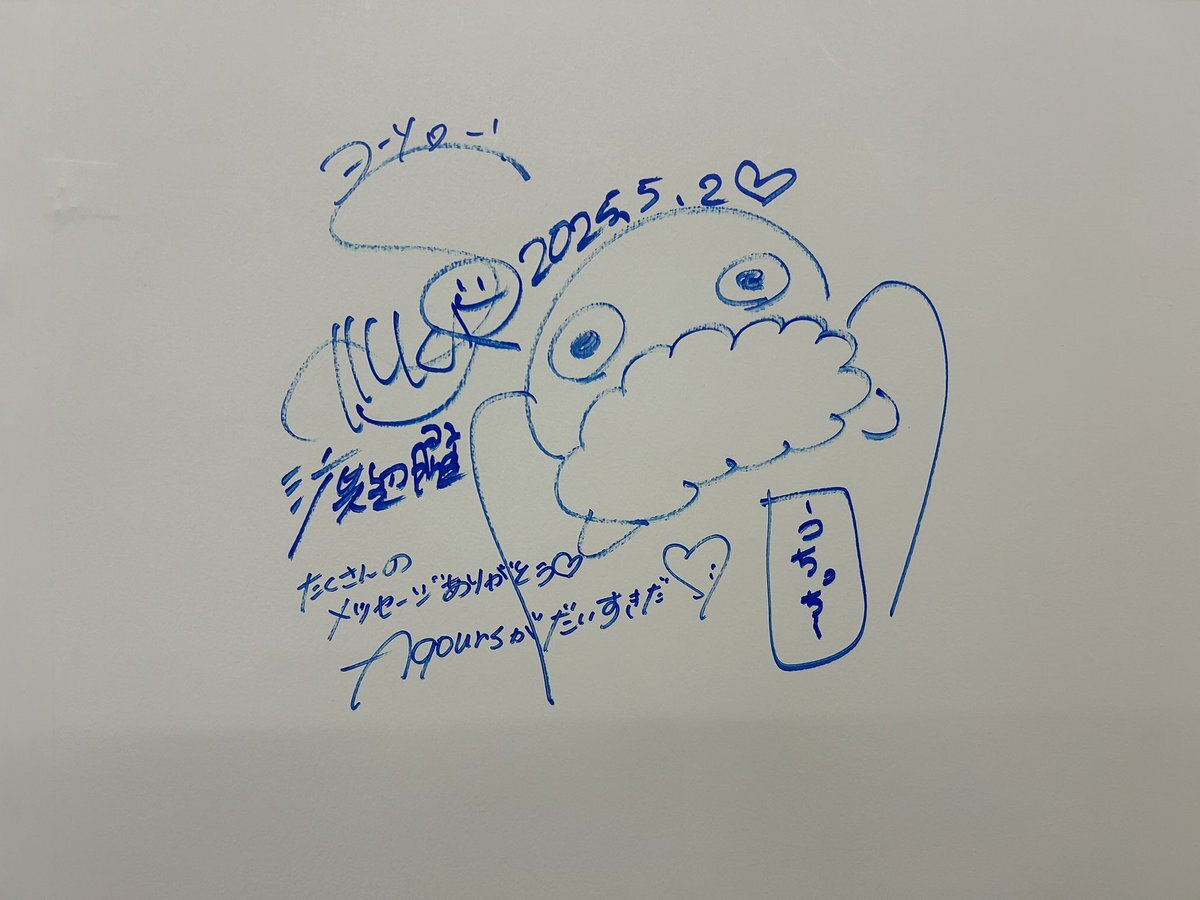 ヨーソロー!
2025.5.2♡
渡辺曜
たくさんの
メッセージありがとう♡
Aqoursがだいすきだ♡
うちっちー